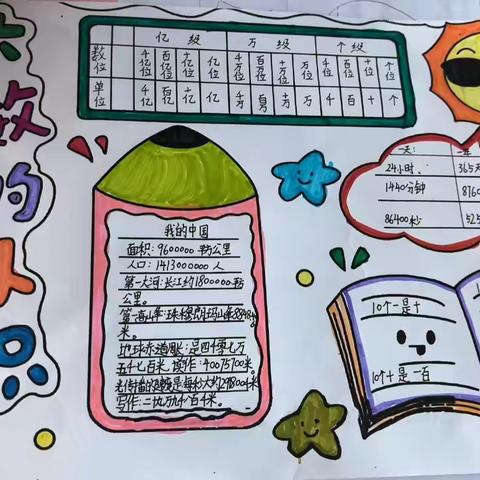 大数的认识
亿级 万级 个级
数位 千亿位 百亿位 十亿位 亿位 千万位 百万位 十万位 万位 千位 百位 十位 个位
单位 千亿 百亿 十亿 亿 千万 百万 十万 万 千 百 十 个
一天: 一年
24小时. 365天
1440分钟 8760
86400秒 525
我的中国
面积:9600000平方公里
人口:1413000000人
第一大河:长江约1800000平方
公里。
第一高山峰:珠穆朗玛山峰8848
米。
地球赤道周长:是四千零七万
五千七百米,读作:40075700米。
光传播的速度是每秒大约
写作:二九万九千
10个一是十
10个十是一百